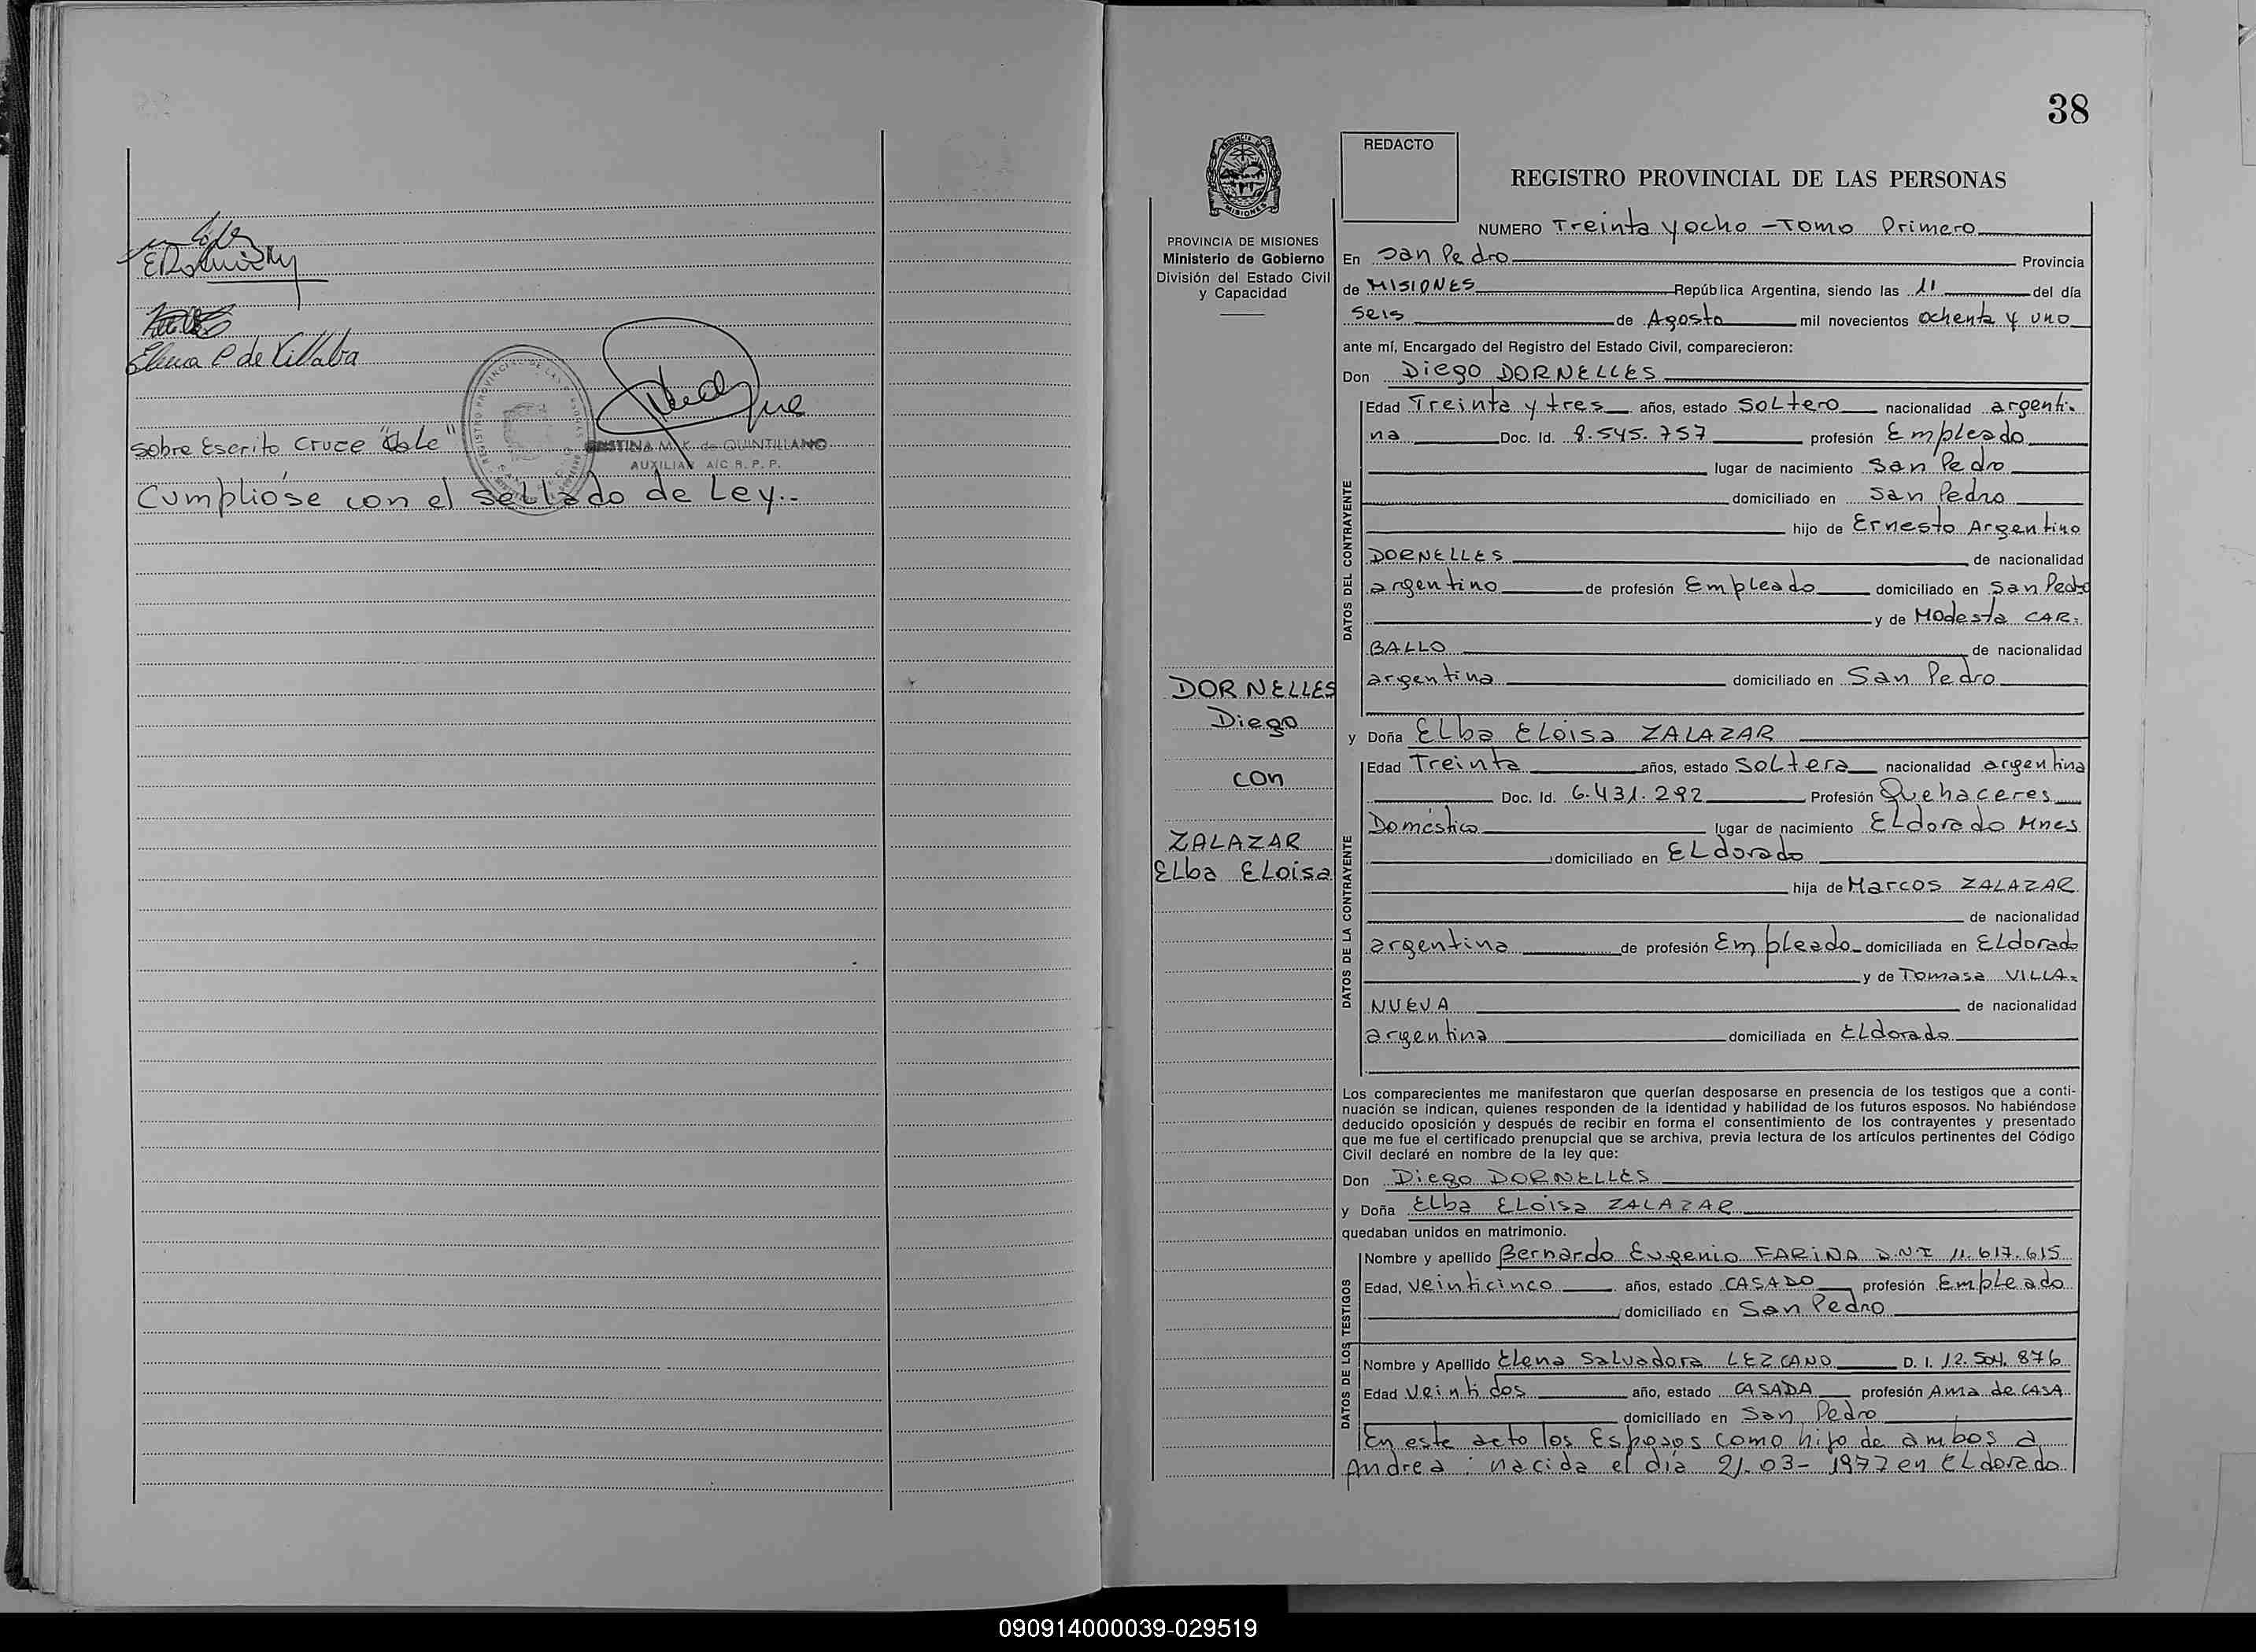 Elena P de Villalba
CRISTINA M. K. de QUINTILLANO
AUXILIAR A/C R. P. P.
Sobre Escrito Cruce
Cumplióse con el sellado de Ley.-
38
REDACTO
REGISTRO PROVINCIAL DE LAS PERSONAS
NUMERO Treinta y ocho - Tomo Primero
PROVINCIA DE MISIONES
Ministerio de Gobierno
División del Estado Civil
y Capacidad
DORNELLES
Diego
con
ZALAZAR
Elba Eloisa
En San Pedro Provincia
de MISIONES República Argentina, siendo las 11 del día
seis de Agosto mil novecientos ochenta y uno
ante mí, Encargado del Registro del Estado Civil, comparecieron:
Don Diego DORNELLES
DATOS DEL CONTRAYENTE
Edad Treinta y tres años, estado Soltero nacionalidad argenti-
na Doc. Id. 8.545.757 profesión Empleado
lugar de nacimiento San Pedro
domiciliado en San Pedro
hijo de Ernesto Argentino
DORNELLES de nacionalidad
argentino de profesión Empleado domiciliado en San Pedro
y de Modesta CAR=
BALLO de nacionalidad
argentina domiciliado en San Pedro
y Doña Elba Eloisa ZALAZAR
DATOS DE LA CONTRAYENTE
Edad Treinta años, estado Soltera nacionalidad argentina
Doc. Id. 6.431.292 Profesión Quehaceres
Doméstico lugar de nacimiento Eldorado Mnes
domiciliado en Eldorado
hija de Marcos ZALAZAR
de nacionalidad
argentina de profesión Empleado domiciliada en Eldorado
y de Tomasa VILLA=
NUEVA de nacionalidad
argentina domiciliada en Eldorado
Los comparecientes me manifestaron que querían desposarse en presencia de los testigos que a conti-
nuación se indican, quienes responden de la identidad y habilidad de los futuros esposos. No habiéndose
deducido oposición y después de recibir en forma el consentimiento de los contrayentes y presentado
que me fue el certificado prenupcial que se archiva, previa lectura de los artículos pertinentes del Código
Civil declaré en nombre de la ley que:
Don Diego DORNELLES
y Doña Elba Eloisa ZALAZAR
quedaban unidos en matrimonio.
DATOS DE LOS TESTIGOS
Nombre y apellido Bernardo Eugenio FARINA D.N.I 11.617.615
Edad, veinticinco años, estado CASADO profesión Empleado
domiciliado en San Pedro
Nombre y Apellido Elena Salvadora LEZCANO D. I. 12.504.876
Edad veintidos año, estado CASADA profesión Ama de CASA
domiciliado en San Pedro
En este acto los Esposos como hijo de ambos a
Andrea : nacida el día 21-03-1977 en Eldorado
090914000039-029519